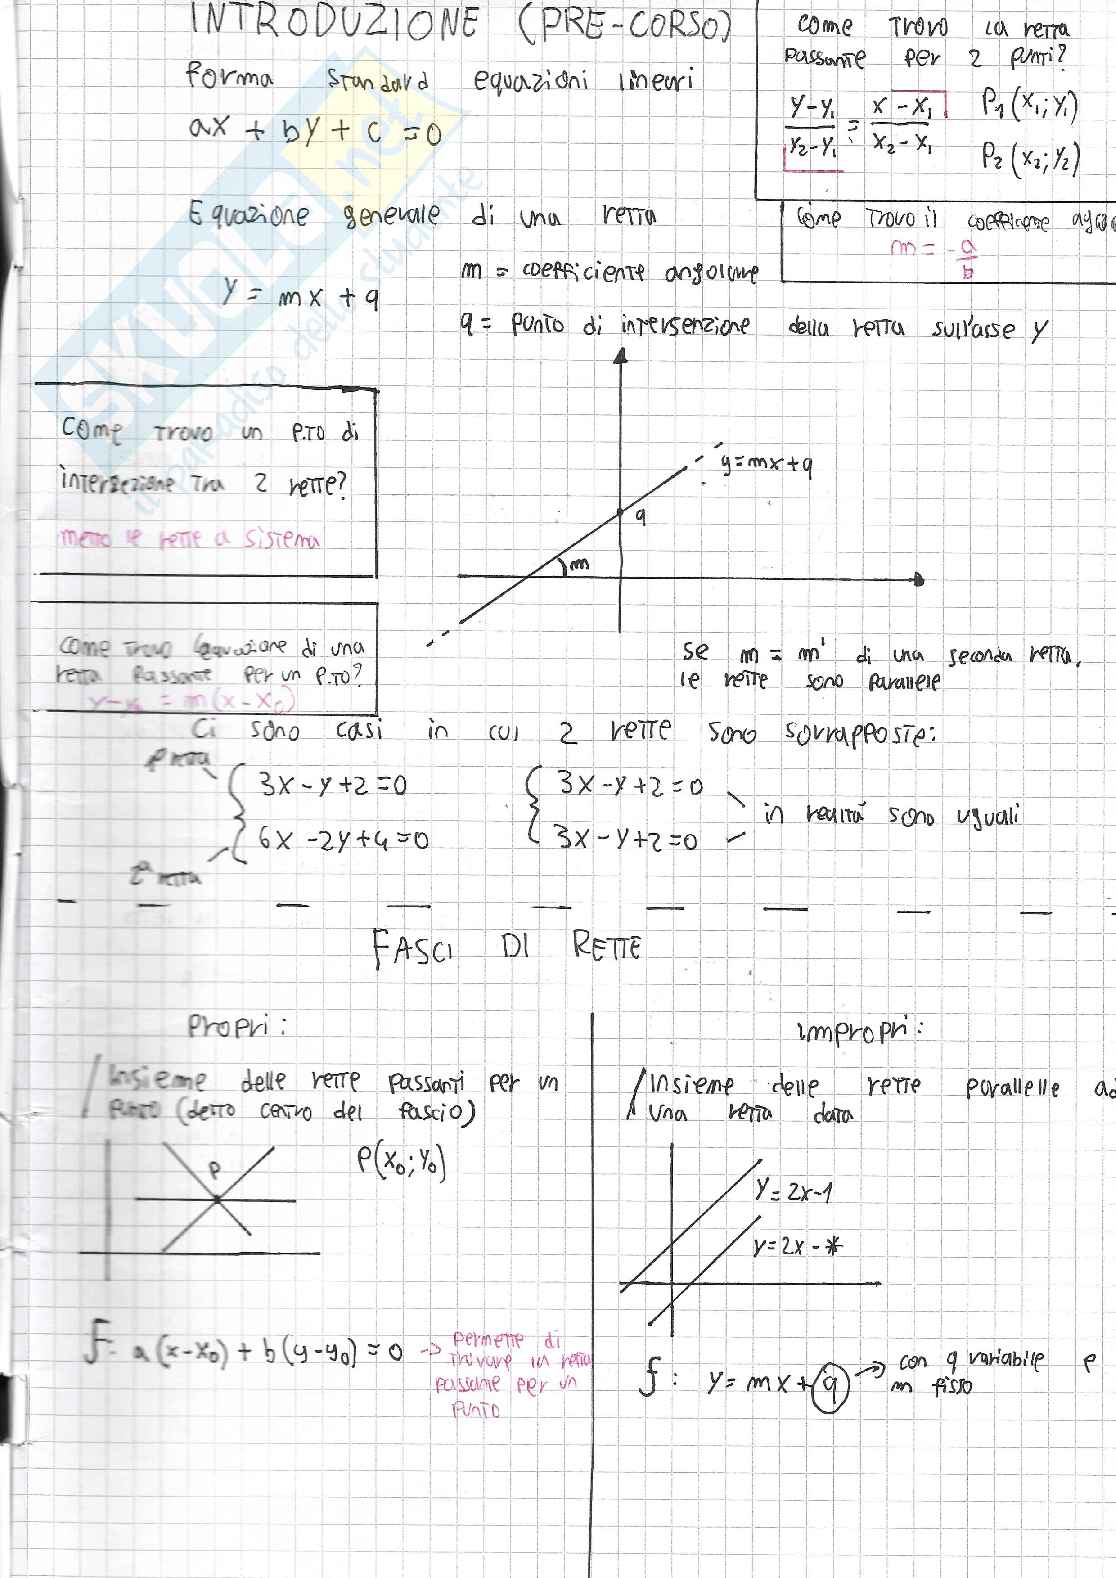 INTRODUZIONE (PRE-CORSO)
forma standard equazioni lineari
ax + by + c = 0
come trovo la retta
passante per 2 punti?
y-y₁ / y₂-y₁ = x-x₁ / x₂-x₁
P₁(x₁;y₁)
P₂(x₂;y₂)
Equazione generale di una retta
come trovo il coefficiente
m = -a/b
y = mx + q
m = coefficiente angolare
q = punto di intersenzione della retta sull'asse y
come trovo un p.to di
intersezione tra 2 rette?
metto le rette a sistema
y=mx+q
q
m
come trovo l'equazione di una
retta passante per un p.to?
y-y₀ = m(x-x₀)
se m = m' di una seconda retta,
le rette sono parallele
Ci sono casi in cui 2 rette sono sovrapposte:
1ª retta
3x-y+2=0
6x-2y+4=0
2ª retta
3x-y+2=0
3x-y+2=0
in realtà sono uguali
FASCI DI RETTE
Propri:
Insieme delle rette passanti per un
punto (detto centro del fascio)
P
P(x₀;y₀)
f: a(x-x₀)+b(y-y₀)=0 → permette di
trovare la retta
passante per un
punto
impropri:
Insieme delle rette parallelle ad
una retta data
y=2x-1
y=2x-*
f: y=mx+q → con q variabile e
m fisso
SKUOLA.net
il paradiso dello studente